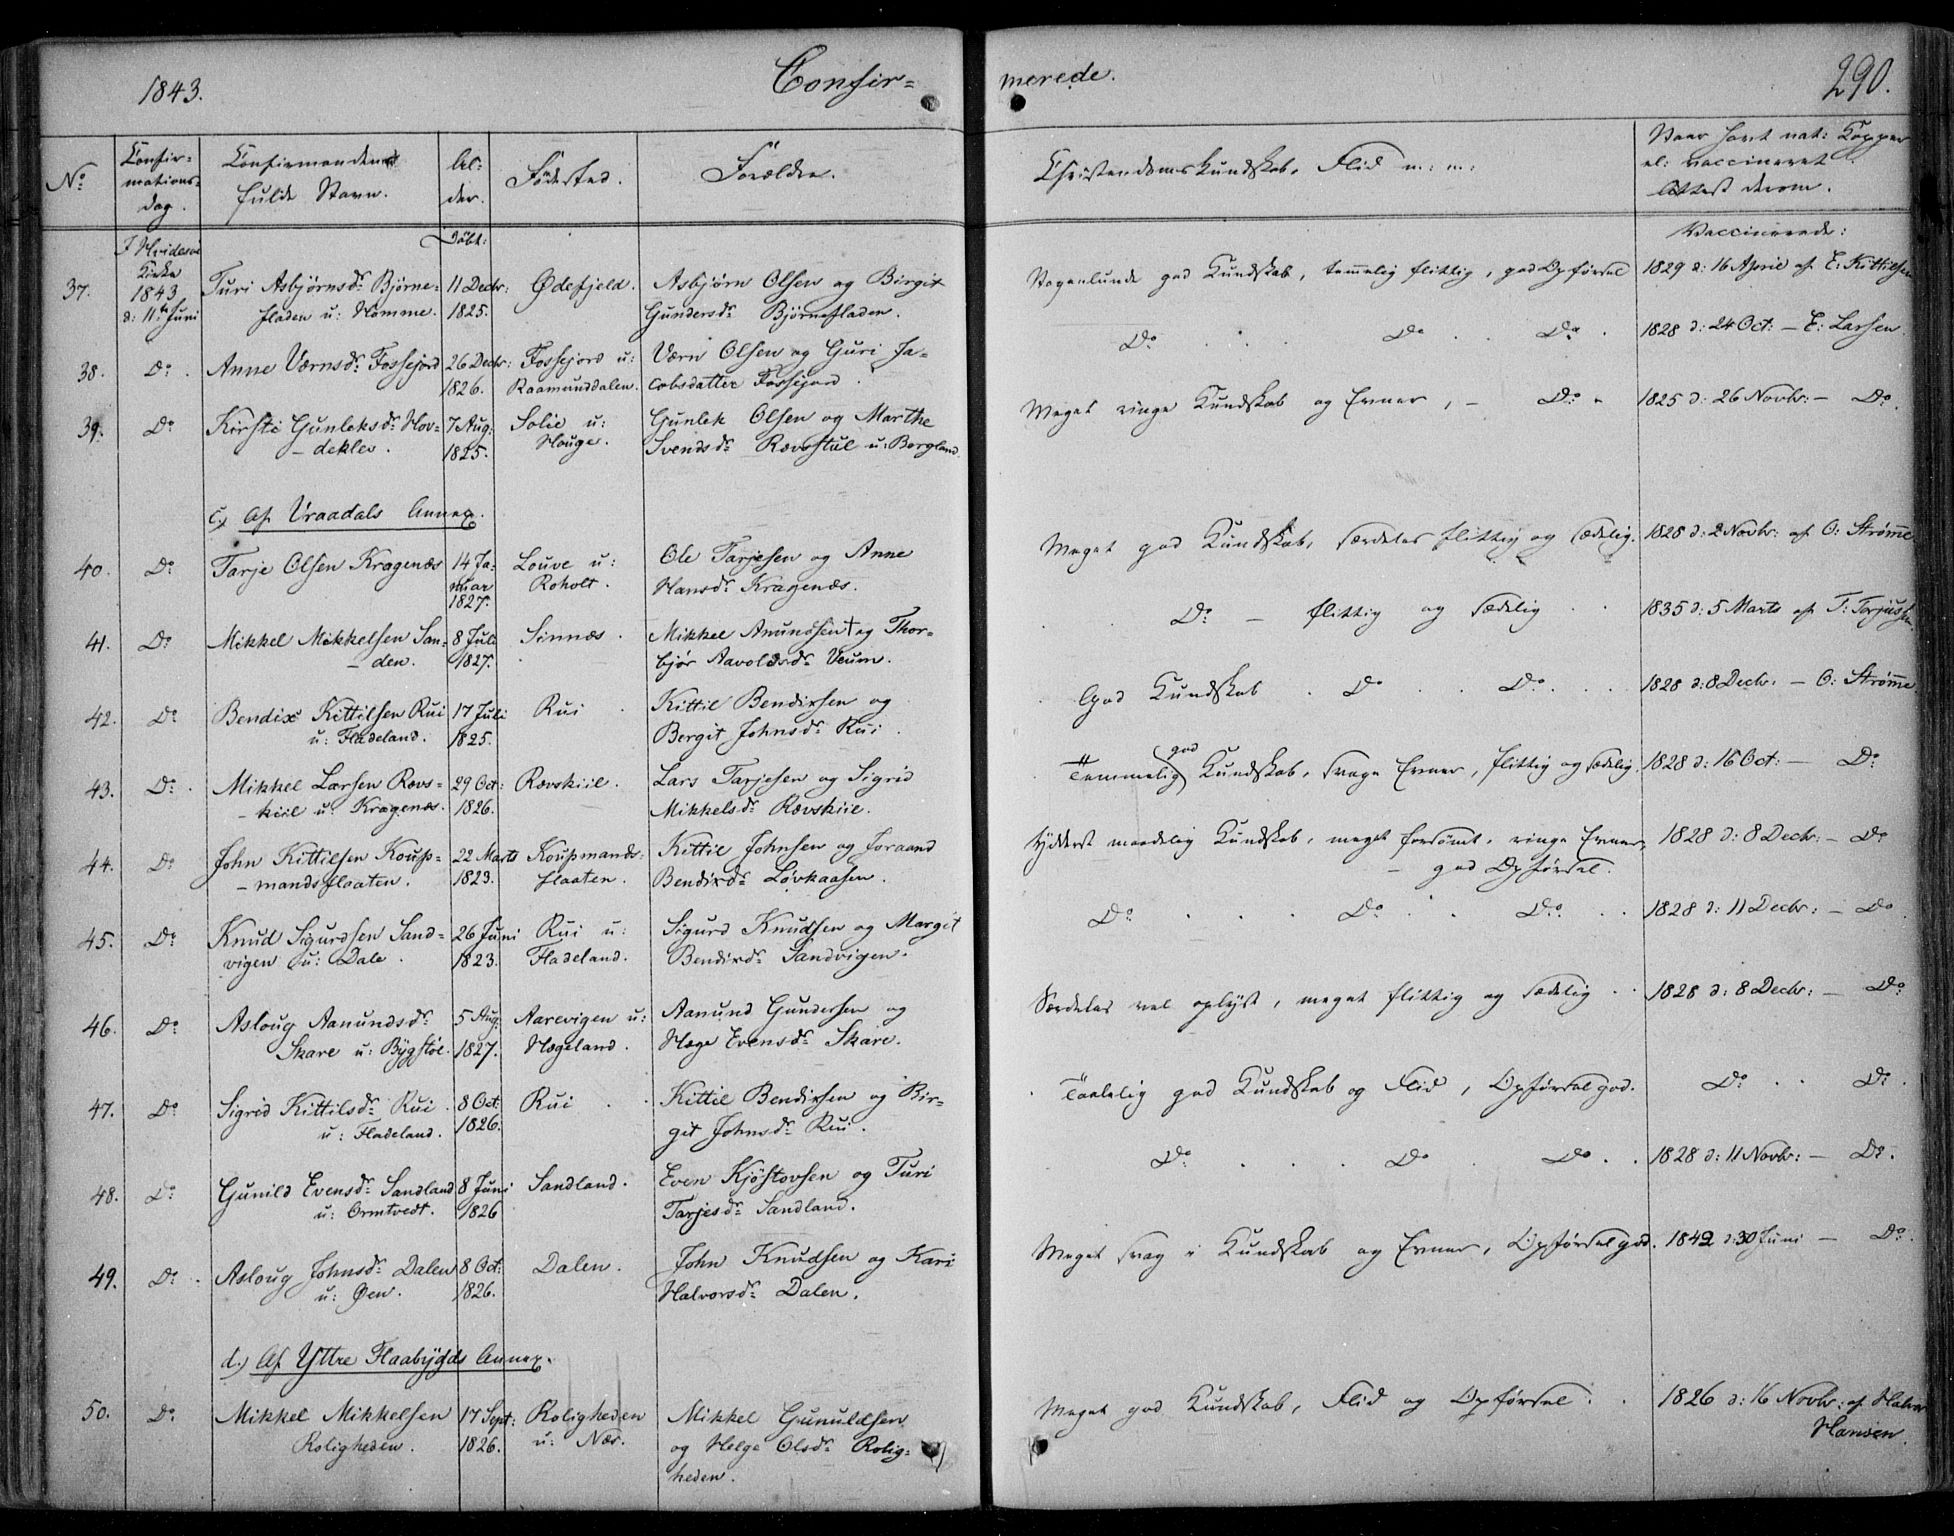 1843.
Confir=
merede.
290.
No
Confir=
mations=
dag.
Confirmandens
fulde Navn.
Al=
der.
Fødested.
Forældre.
Christendomskundskab, Flid m: m:
Naar havt nat: Kopper
el: vaccineret
Attest derom.
I Hvidesøe
Kirke
1843
d: 11te Juni
Døbt:
Vaccinerede:
37.
Turi Asbjørnsdr Bjørne=
fladen u: Homme.
11 Decbr:
1825.
Ødefjeld.
Asbjørn Olsen og Birgit
Gundersdr Bjørnefladen.
Nogenlunde god Kundskab, temmelig flittig, god Opførsel
1829 d: 16 April af E: Kittilsen
38.
Do.
Anne Værnsdr Fossejord
26 Decbr:
1826.
Fossejord u:
Raamunddalen.
Værn Olsen og Guri Ja=
cobsdatter Fossejord.
Do . . . Do . . Do .
1828 d: 24 Oct: – E: Larsen
39.
Do
Kirsti Gunleksdr Hov=
– deklev.
7 Aug:
1825.
Solie u:
Houge.
Gunlek Olsen og Marthe
Svendsdr Rævsstul u: Borgland.
Meget ringe Kundskab og Evner, – Do –
1825 d: 26 Novbr: – Do.
c.) Af Vraadals Annex.
40.
Do
Tarje Olsen Kragenæs
14 Ja=
nuar
1827.
Louve u:
Roholt.
Ole Tarjesen og Anne
Hansdr Kragenæs.
Meget god Kundskab, særdeles flittig og sædelig.
1828 d: 2 Novbr: af O: Strømme
41.
Do
Mikkel Mikkelsen San=
– den.
8 Juli
1827.
Sinnæs.
Mikkel Anundsen † og Thor=
bjør Aavoldsdr Veum.
Do – flittig og sædelig . .
1835 d: 5 Marts af T: Torjussen.
42.
Do
Bendix Kittilsen Rui
u: Fladeland.
17 Juli
1825.
Rui
Kittil Bendixsen og
Bergit Johnsdr Rui.
God Kundskab . Do . . Do . . .
1828 d: 8 Decbr. – O: Strømme.
43.
Do.
Mikkel Larsen Rævs=
– kiil u: Kragenæs.
29 Oct:
1826.
Rævskiil.
Lars Tarjesen og Sigrid
Mikkelsdr Rævskiil.
god
Temmelig Kundskab, svage Evner, flittig og sædelig.
1828 d: 16 Oct: – Do
44.
Do
John Kittilsen Koups=
– mandsflaaten.
22 Marts
1823.
Koupmands=
flaaten.
Kittil Johnsen og Joraand
Bendixdr Løvkaasen.
Yderst maadelig Kundskab, meget forsømt, ringe Evner,
– god Opførsel.
1828 d: 8 Decbr: – Do
45.
Do
Knud Sigurdsen Sand=
vigen u: Dale.
26 Juni
1823.
Rui u:
Fladeland.
Sigurd Knudsen og Margit
Bendixdr Sandvigen.
Do . . . Do . . Do . .
1828 d: 11 Decbr: – Do.
46.
Do
Asloug Aanundsdr
Skare u: Bygstøl.
5 Aug:
1827.
Aarevigen u:
Hægeland.
Aanund Gundersen og
Hæge Evensdr Skare.
Særdeles vel oplyst, meget flittig og sædelig . .
1828 d: 8 Decbr: – Do
47.
Do
Sigrid Kittilsdr Rui
u: Fladeland.
8 Oct:
1826.
Rui . .
Kittil Bendixsen og Bir=
git Johnsdr Rui.
Taalelig god Kundskab og Flid, Opførsel god.
Do . . Do .
48.
Do
Gunild Evensdr Sandland
u: Ormtvedt.
8 Juni
1826
Sandland.
Even Kjøstovsen og Turi
Tarjesdr Sandland.
Do . . . Do . Do . .
1828 d: 11 Novbr: – Do.
49.
Do .
Asloug Johnsdr Dalen
u: Øen.
8 Oct:
1826.
Dalen.
John Knudsen og Kari
Halvorsdr Dalen.
Meget svag i Kundskab og Evner, Opførsel god.
1842 d: 30 Juni – Do.
d.) Af Yttre Flaabygds Annex.
50.
Do
Mikkel Mikkelsen
Roligheden.
17 Sept:
1826.
Roligheden
u: Næs.
Mikkel Gunuldsen
og Helge Olsdr Rolig=
heden.
Meget god Kundskab, Flid og Opførsel . .
1826 d: 16 Novbr: af Halvor
Hansen.